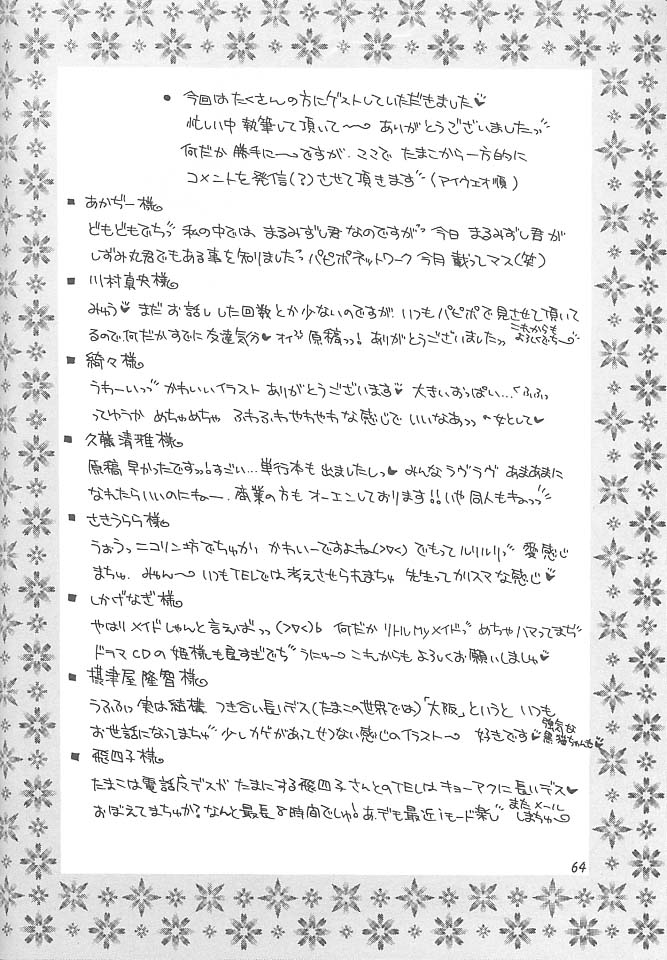 ● 今回はたくさんの方にゲストしていただきました♥
忙しい中 執筆して頂いて〜 ありがとうございましたっ
何だか 勝手に〜ですが、ここで たまこから一方的に
コメントを発信(?)させて頂きます (アイウエオ順)
■ あかぢー様
どもどもでちっ 私の中では、まるみずし君 なのですが 今日 まるみずし君が
しずみ丸君でもある事を知りましたっ パピポネットワーク 今月 載ってマス(笑)
■ 川村真央様
みゅう♥ まだ お話しした回数とか少ないのですが、いつもパピポで見させて頂いて
るので、何だかすでに 友達気分♥ 原稿っっ! ありがとうございましたっ これからも
よろしくでち〜
■ 綺々様
うわーいっっ かわいいイラスト ありがとうございます♥ 大きいおっぱい…くふふっ
ってゆうか めちゃめちゃ ふわふわやわやわな感じで いいなあっっ の女として♥
■ 久藤清雅様
原稿 早かったですっっ!すごい…単行本も出ましたしっ♥ みんなラヴラヴ あまあまに
なれたらいいのにキュー。商業の方も オーエンしております!!いや 同人もキュっっ
■ さきうらら様
うおうっ ニコリン坊でちゅかり かわいーですよね(>▽<) でもって ルリルリっ 愛感じ
まちゅ。みゅん〜 いつもTELでは、考えさせられまちゅ 先生ってカリスマな感じ♥
■ しかげなぎ様
やはり メイドしゃんと言えばっっ(>▽<)b 何だか リトルMyメイドっ めちゃハマってまぢ
ドラマCDの 姫様も良すぎでち うにゅ〜 これからも よろしくお願いしましゅ♥
■ 摂津屋隆智様
うふふっ 実は結構 つき合い長いデス(たまこの世界では)「大阪」というと いつも
お世話になってまちゅ 少しカゲがあってせつない感じのイラスト〜 好きです♥ 強気な
黒猫ちゃんも♥
■ 飛四子様
たまこは電話反デスが たまにする飛四子さんとのTELはキョーアクに長いデス♥
おぼえてまちゅか?なんと最長8時間でしゅ!あ、でも最近iモード楽し またメール
しまちゅ〜
64